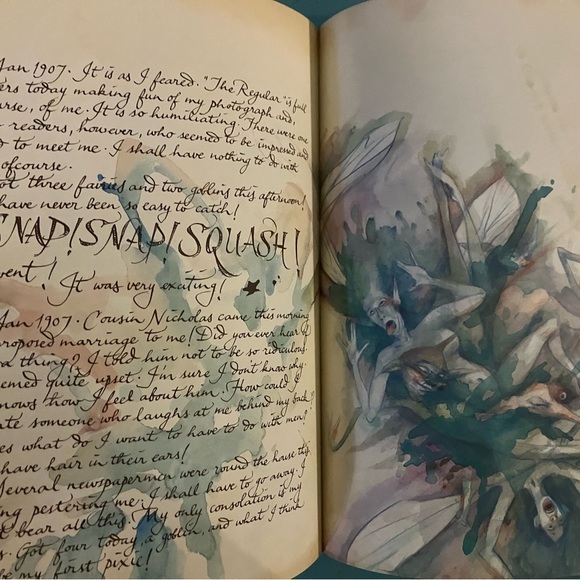 Jan 1907. It is as I feared. "The Regular" is full
ers today making fun of my photograph and,
urse, of me. It is so humiliating. There were one
readers, however, who seemed to be impressed and
d to meet me. I shall have nothing to do with
ofcourse.
ot three fairies and two goblins this afternoon!
have never been so easy to catch!
SNAP! SNAP! SQUASH!
went! It was very exciting!
Jan 1907. Cousin Nicholas came this morning
proposed marriage to me! Did you ever hear
a thing? I told him not to be so ridiculous
emed quite upset. I'm sure I don't know why.
nows how I feel about him. How could I
ate someone who laughs at me behind my back?
es what do I want to have to do with men?
have hair in their ears!
Several newspapermen were round the house this
ng pestering me. I shall have to go away. I
t bear all this. My only consolation is my
s. Got four today, a goblin, and what I think
be my first pixie!